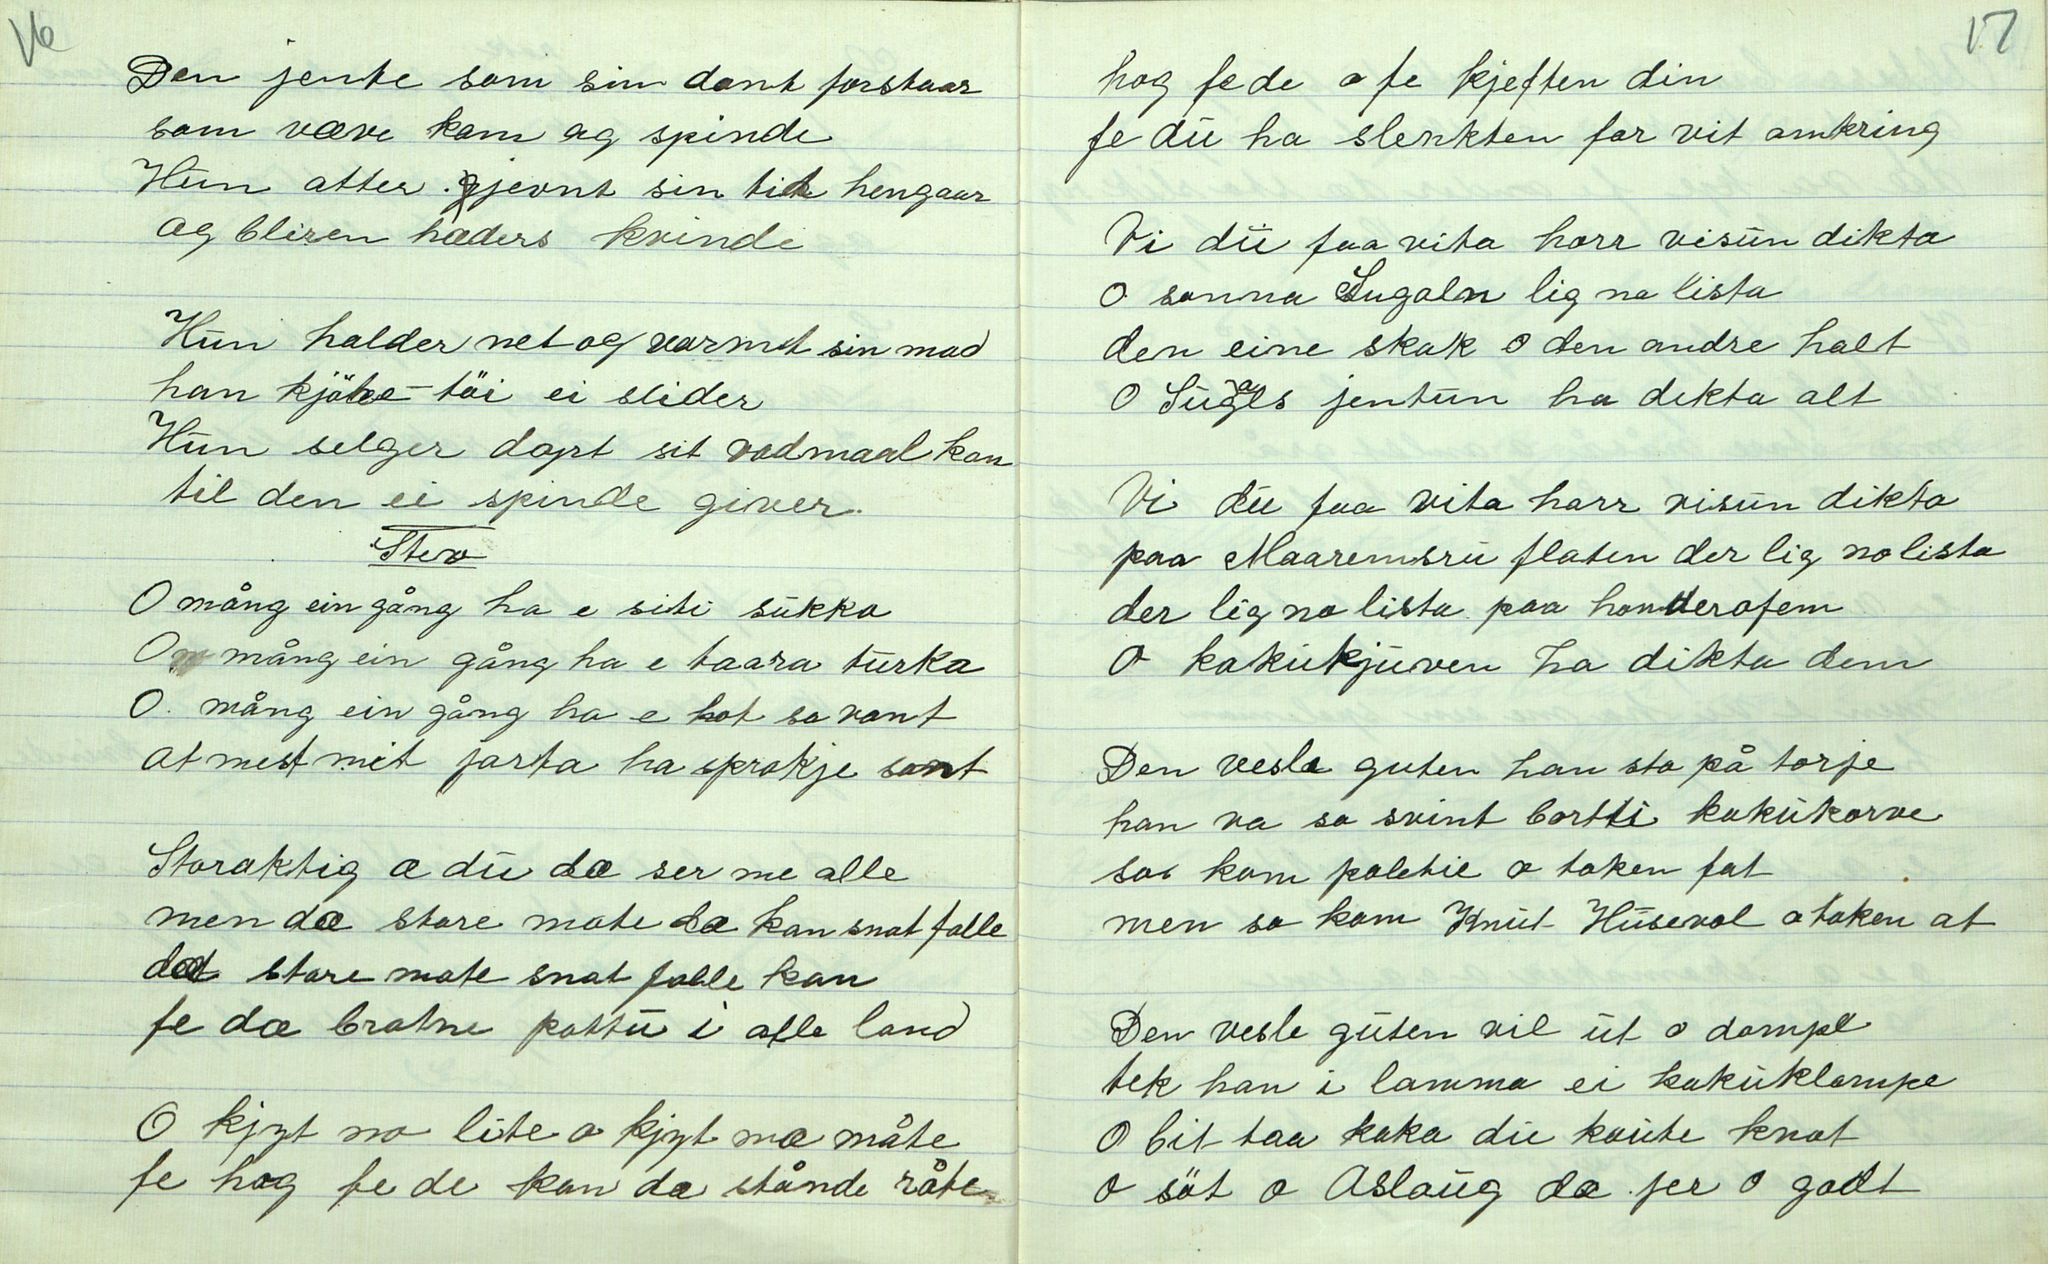 16
Den jente som sin dont forstaar
som væve kom og spinde
Hun atter gjevnt sin tid hengaar
og bliren hæders kvinde
Hun halder net og varmt sin mad
han kjöbe-töi ei slider
Hun selger dørt sit vadmaal kan
til den ei spinde giver.
Stev
O mång ein gång ha e siti sukka
O mång ein gång ha e taara turka
O mång ein gång ha e hot so vont
at mest mit jarta ha sprokje sont
Storaktig æ du dæ ser me alle
men dæ store mote dæ kan snat falle
dæt store mote snat falle kan
fe dæ brotne pottu i alle land
O kjyt no lite o kjyt mæ måte
fe hog fe de kan dæ stånde råte
17
hog fe de o fe kjeften din
fe du ha slenkten for vit omkring
Vi du faa vita horr visun dikta
O sonna Sugaln lig na lista
den eine skak o den andre halt
O Sugals jentun ha dikta alt
Vi du faa vita horr visun dikta
paa Maaremsru flaten der lig no lista
der lig no lista paa honderofem
O kakukjuven ha dikta dem
Den vesle guten han sto på torje
han va so svint bortti kakukorve
so kom poletie o token fat
men so kom Knut Husevol o token at
Den vesle guten vil ut o dampe
tek han i lamma ei kakuklampe
O bit taa kaka du koute knot
o söt o Aslaug dæ fer o godt